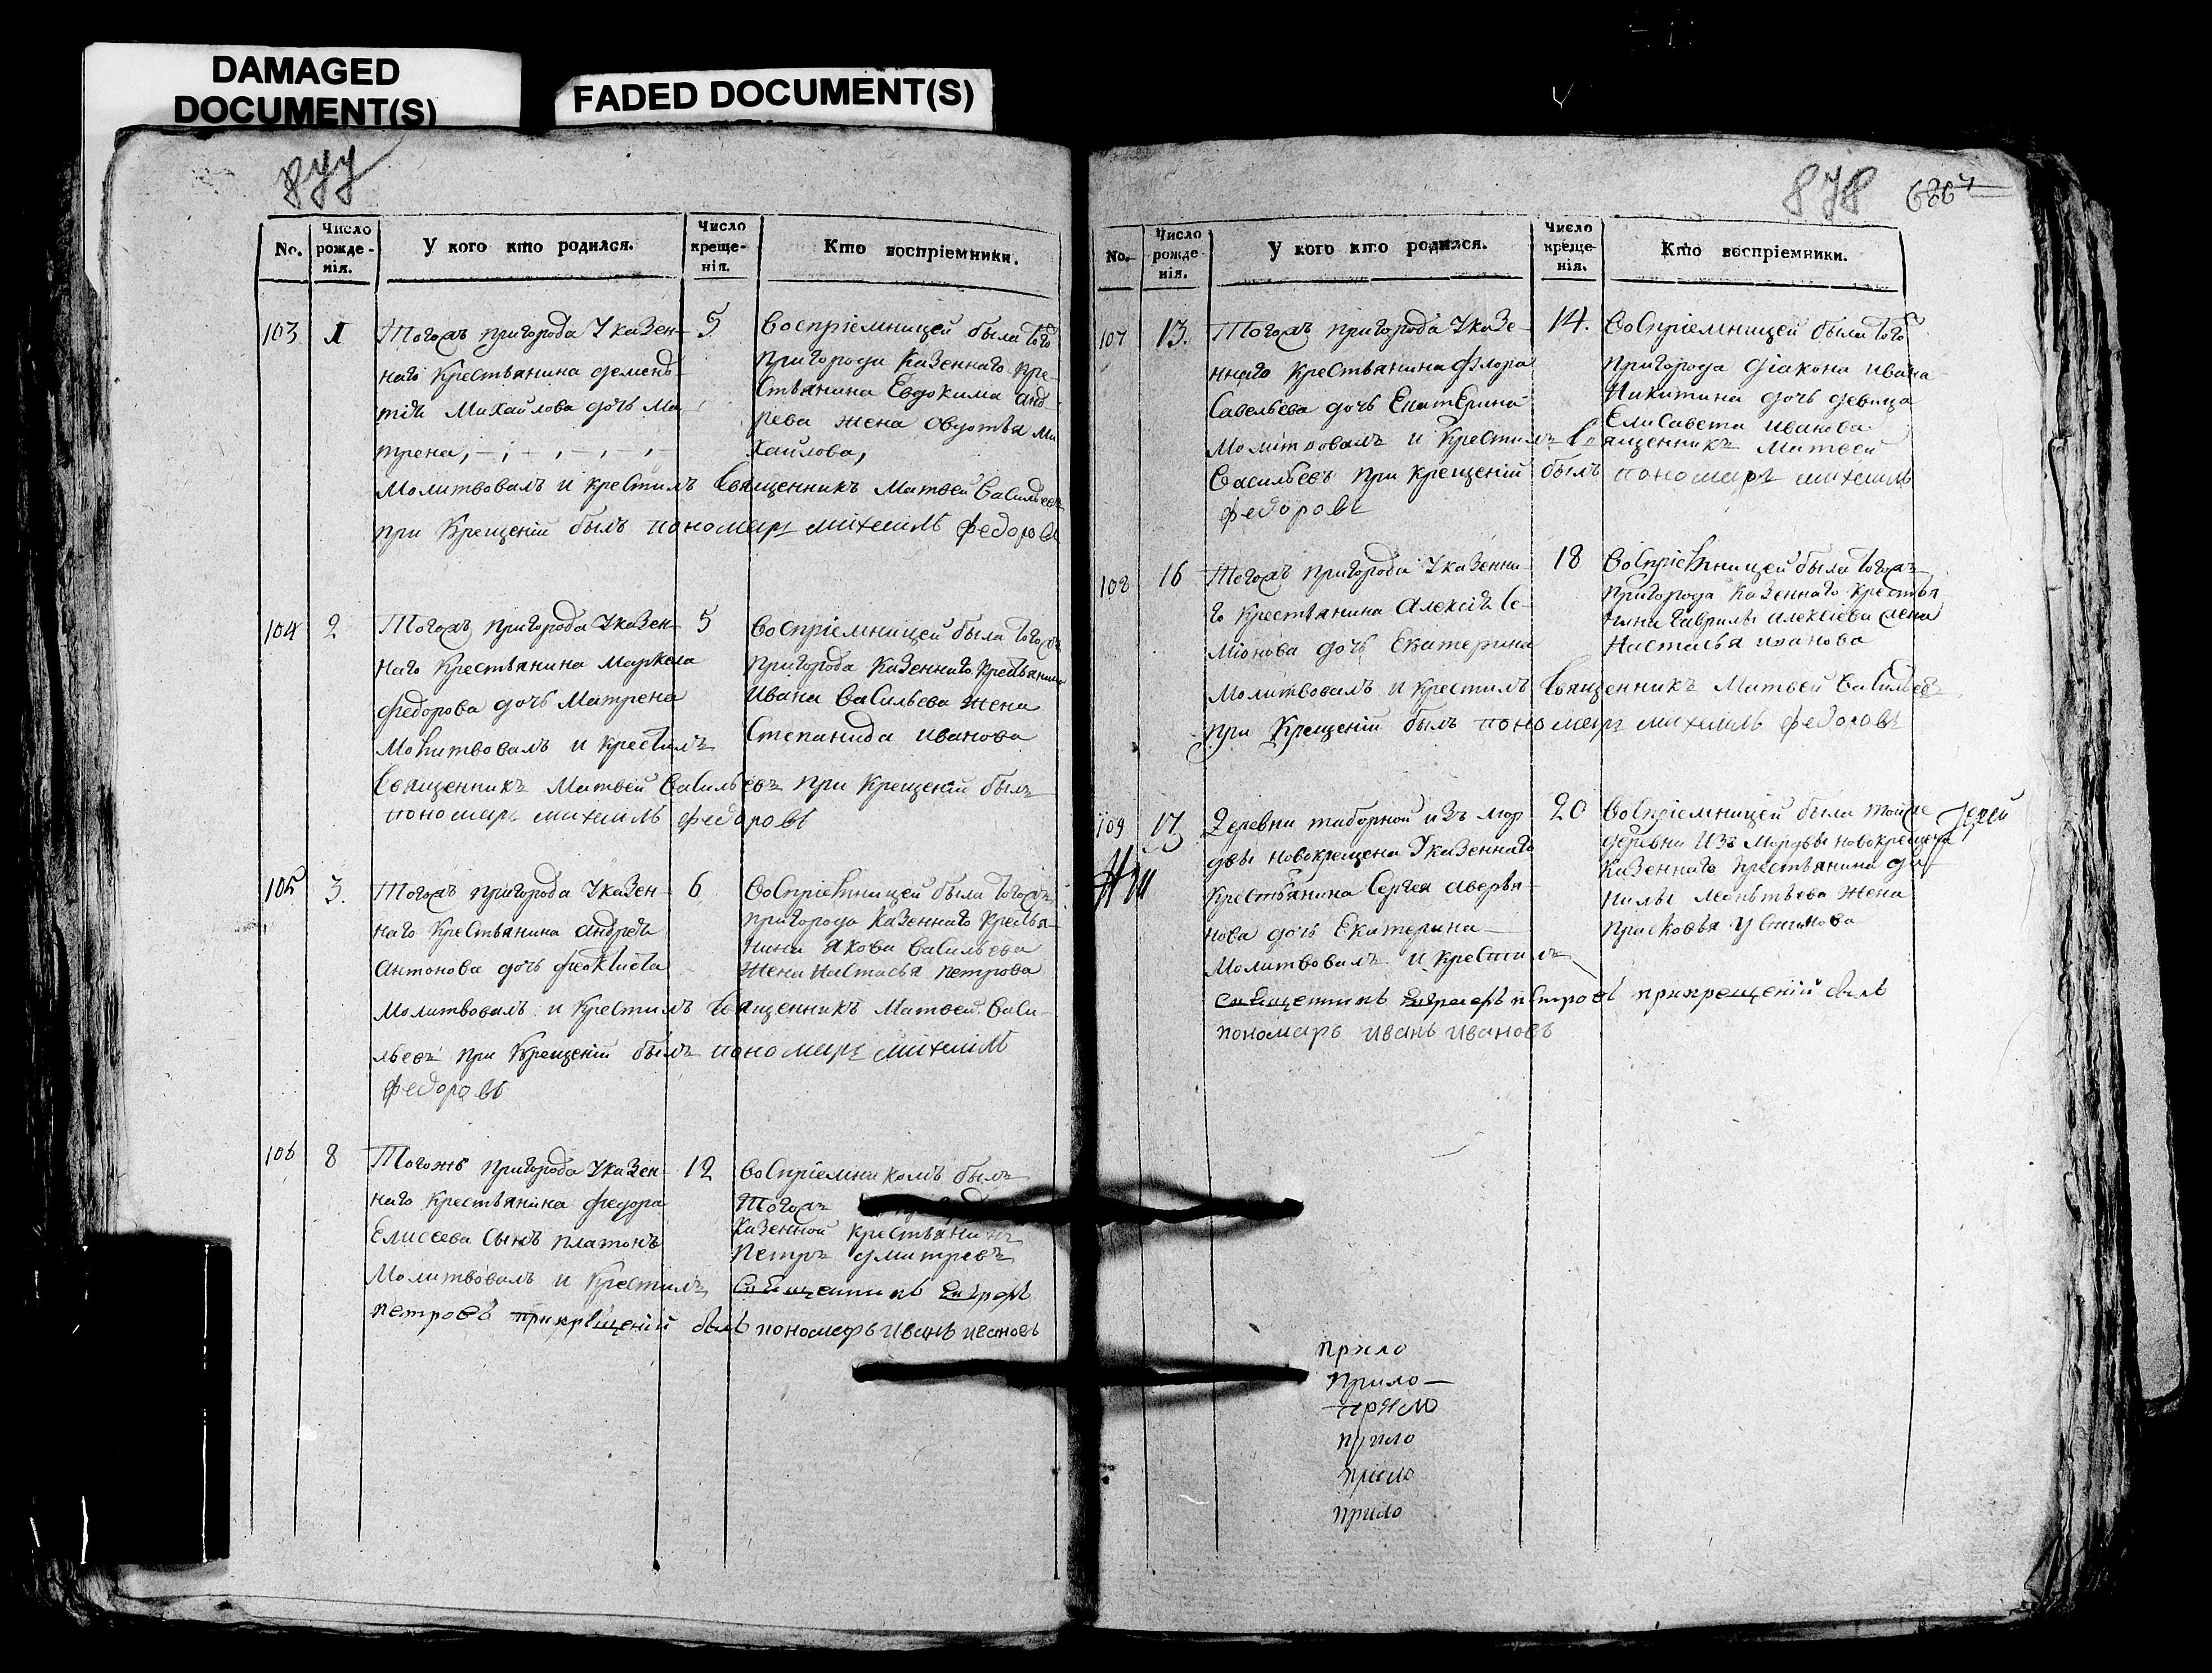 DAMAGED
DOCUMENT(S)
FADED DOCUMENT(S)
877
No.
Число рожде-нія.
У кого кто родился.
Число креще-нія.
Кто воспріемники.
103
1
Тогожъ пригорода Указен-
наго крестьянина Демень-
тія Михайлова дочь Ма
трена,
5
воспріемницей была того
пригорода казеннаго кре-
стьянина Евдокима анд
рева жена Овдотья Ми
хайлова,
Молитвовалъ и крестилъ священникъ Матвей Васильевъ
при крещеніи былъ пономарь михаилъ федоровъ
104
2
Тогожъ пригорода Указен-
наго крестьянина Маркела
федорова дочь Матрена
5
воспріемницей была тогожъ
пригорода казеннаго крестьянина
Ивана Васильева жена
Степанида иванова
Молитвовалъ и крестилъ
священникъ Матвей Васильевъ при крещеніи былъ
пономарь михаилъ федоровъ
105
3.
Тогожъ пригорода Указен-
наго крестьянина андрея
антонова дочь феоктиста
6
воспріемницей была тогожъ
пригорода казеннаго крестья-
нина якова васильева
жена настасья петрова
Молитвовалъ и крестилъ священникъ Матвей Васи-
льевъ при крещеніи былъ пономарь михаилъ
федоровъ
106
8
Тогожъ пригорода Указен-
наго крестьянина федора
Елисеева сынъ платонъ
12
воспріемникомъ былъ
тогожъ
казенной крестьянинъ
петръ дмитревъ
Молитвовалъ и крестилъ священникъ
петровъ при крещеніи былъ пономарь иванъ ивановъ
878
No.
Число рожде нія.
У кого кто родился.
Число креще-нія.
Кто воспріемники.
107
13.
Тогожъ пригорода Указе-
ннаго крестьянина флора
Савельева дочь Екатерина
14.
воспріемницей была того
пригорода діакона ивана
Никитина дочь девица
Елисавета иванова
Молитвовалъ и крестилъ священникъ Матвей
Васильевъ при крещеніи былъ пономарь михаилъ
федоровъ
108
16
Тогожъ пригорода Указенна-
го крестьянина алексія Се-
міонова дочь Екатерина
18
воспріемницей была тогожъ
пригорода казеннаго крестья
нина гаврилы алексіева жена
Настасья иванова
Молитвовалъ и крестилъ священникъ Матвей Васильевъ
при крещеніи былъ пономарь михаилъ федоровъ
109
17
Деревни таборной изъ мор
двы новокрещена Указеннаго
крестьянина Сергея аверья-
нова дочь Екатерина
20
воспріемницей была тойже
деревни изъ Мордвы новокрещена
казеннаго крестьянина да
нилы жена
Прасковья Устинова
Молитвовалъ и крестилъ
священникъ петровъ при крещеніи былъ
пономарь иванъ ивановъ
прило
прило
прило
прило
прило
прило